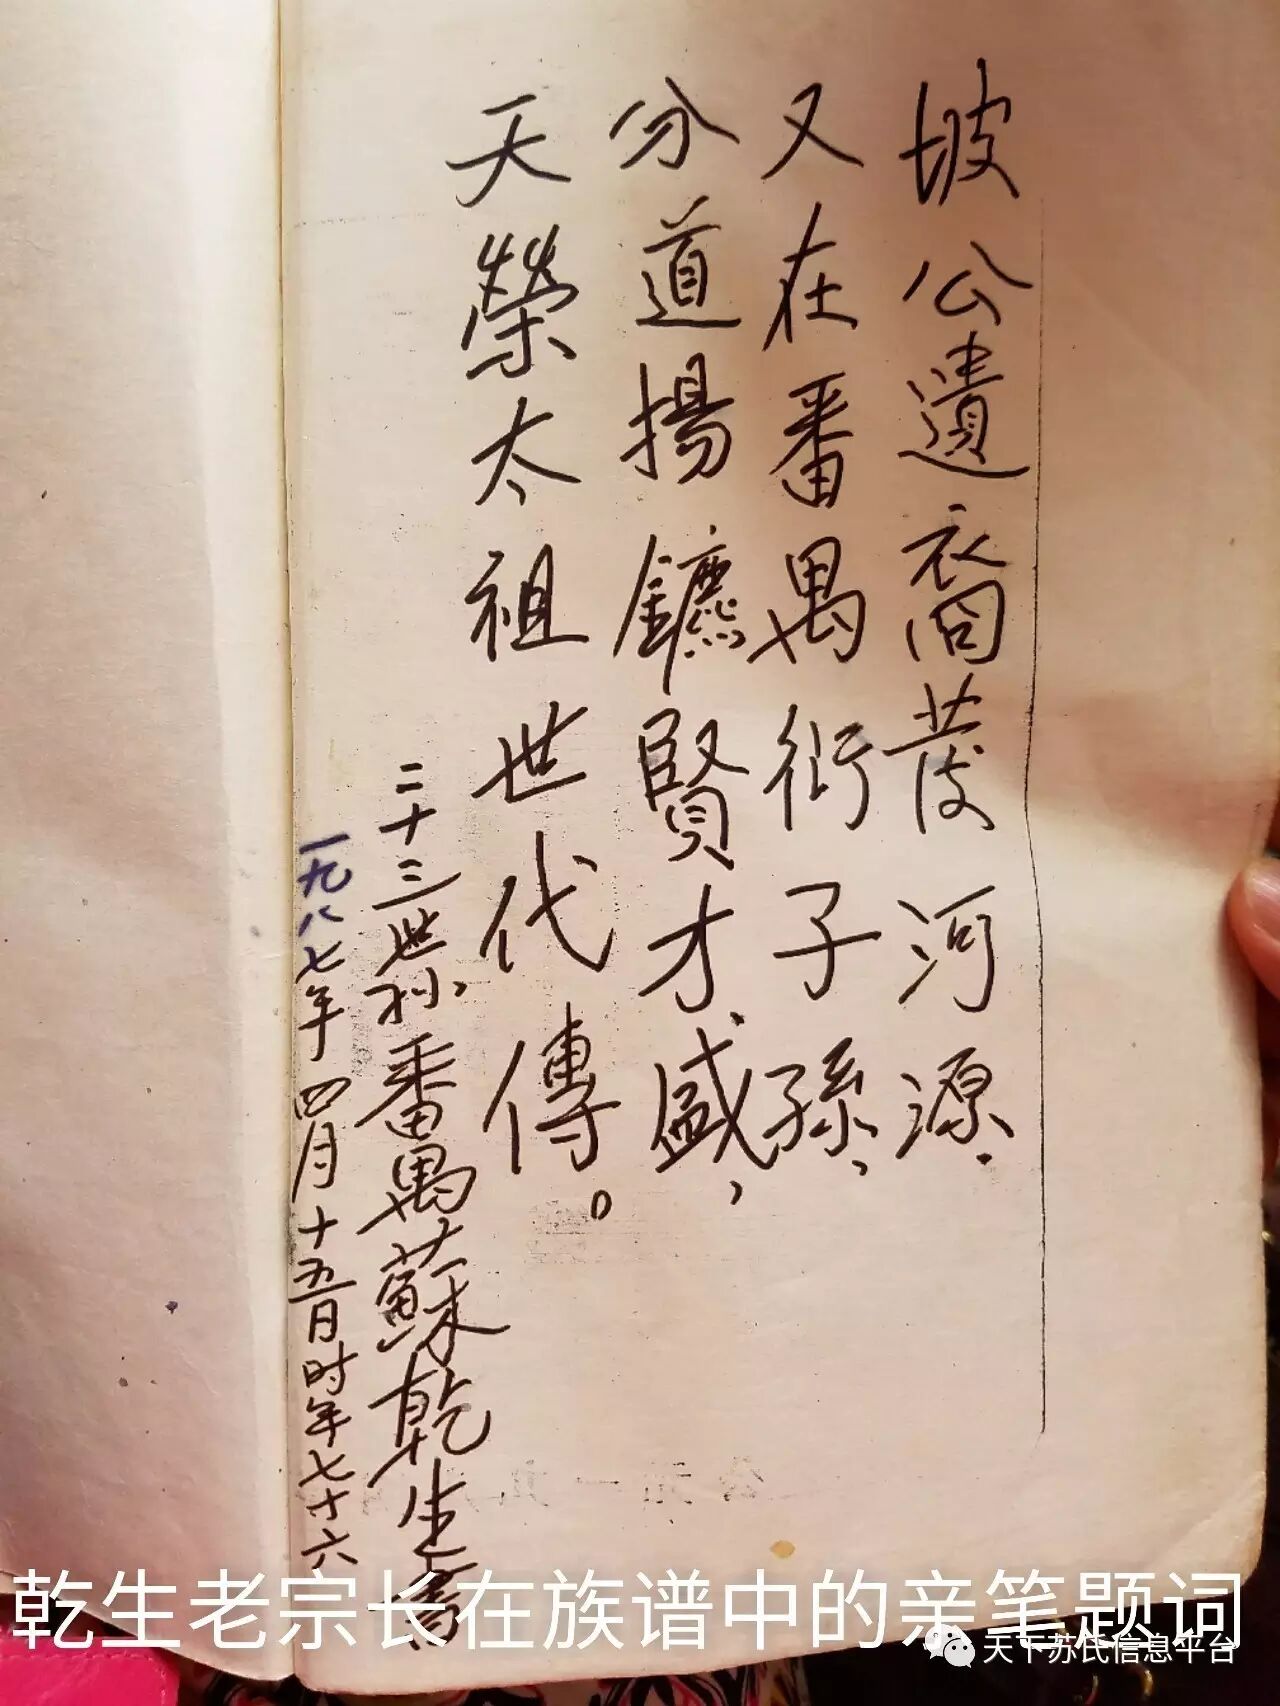 坡公遺裔茂河源，
又在番禺衍子孫，
分道揚鑣賢才盛，
天榮太祖世代傳。
二十三世孙番禺蘇乾生書
一九八七年四月十五日时年七十六
乾生老宗长在族谱中的亲笔题词
天下苏氏信息平台